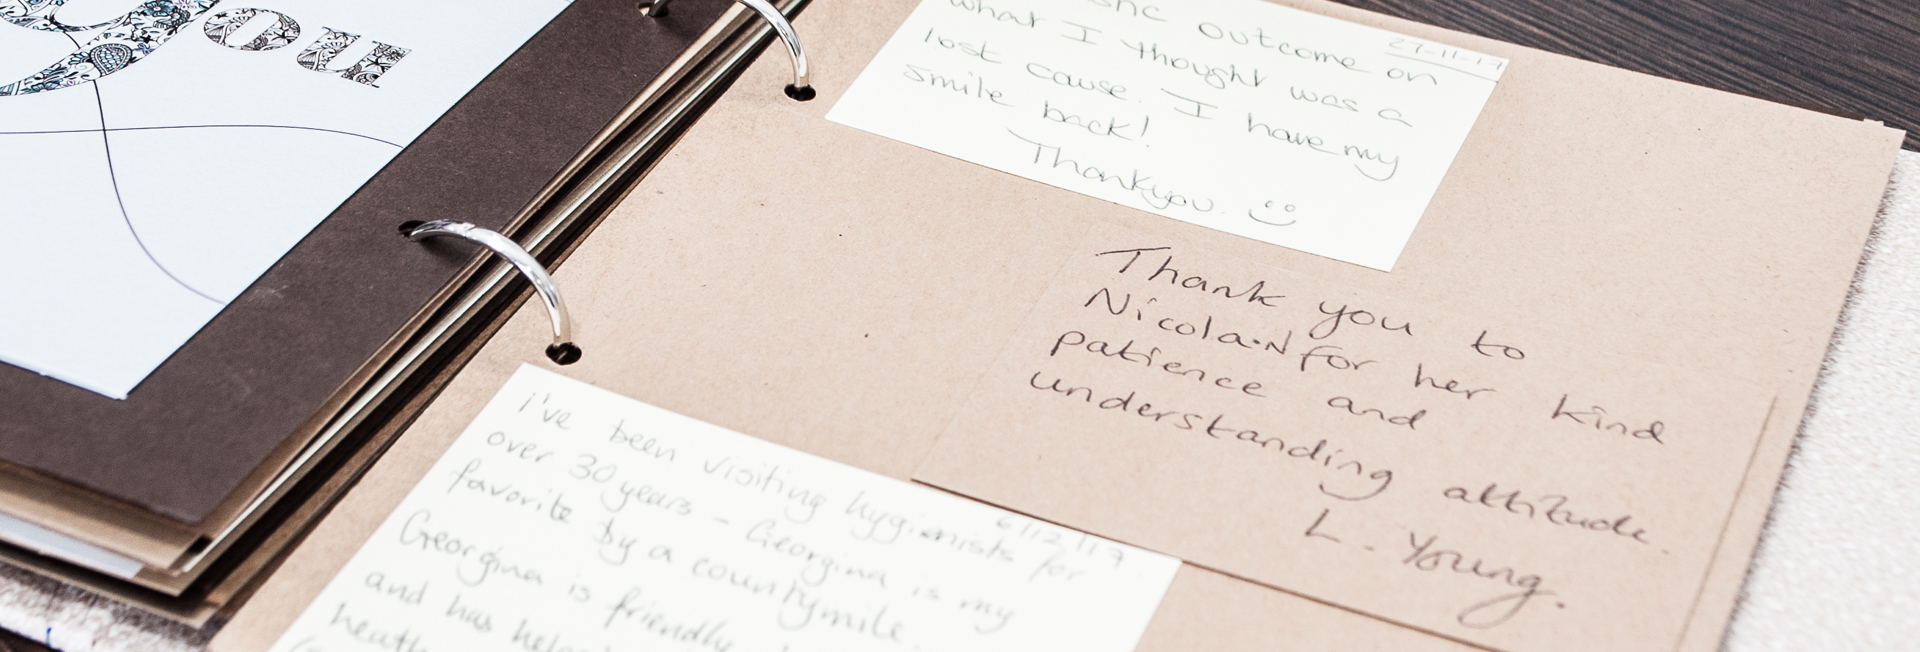 you
27-11-17
outcome on
what I thought was a
lost cause. I have my
smile back!
Thankyou. :)
Thank you to
Nicola.N for her kind
patience and
understanding attitude.
L. Young.
6/12/17
i've been visiting hygienists for
over 30 years - Georgina is my
favorite by a countrymile.
Georgina is friendly
and has